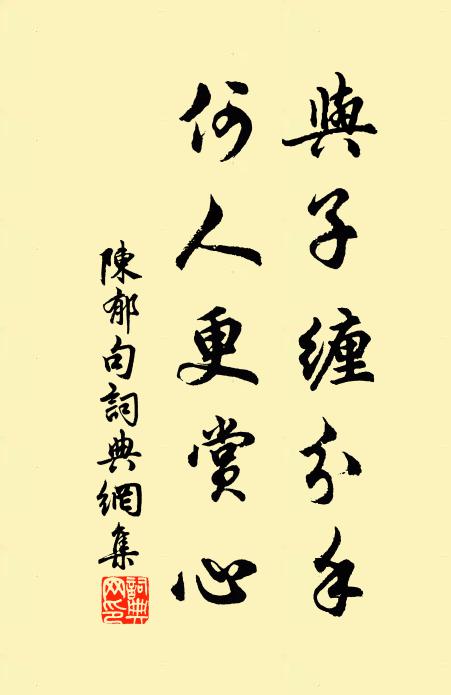 與子纏分手
何人更賞心
陳郁句詞典網集
詞典
网印